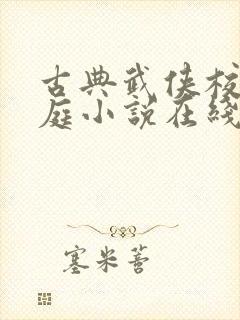 古典武侠校
庭小说在线
塞米蓍